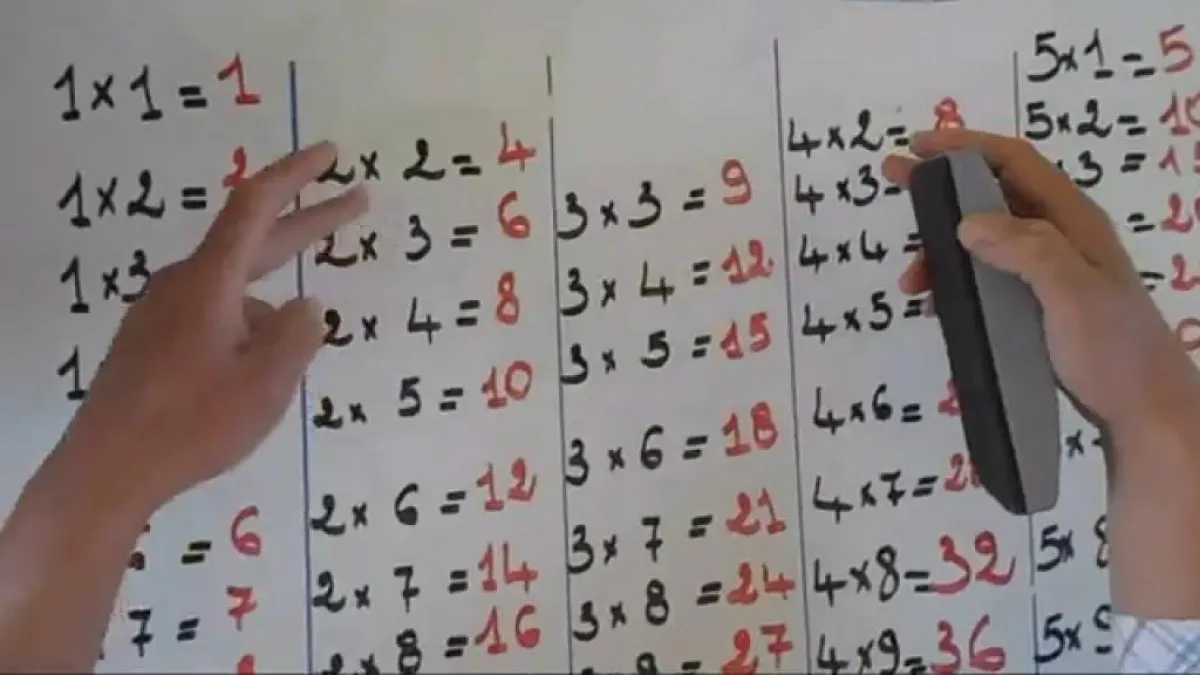 1 × 1 = 1
1 × 2 =
1 × 3
1
= 6
7 = 7
2 × 2 = 4
2 × 3 = 6
2 × 4 = 8
2 × 5 = 10
2 × 6 = 12
2 × 7 = 14
2 × 8 = 16
3 × 3 = 9
3 × 4 = 12
3 × 5 = 15
3 × 6 = 18
3 × 7 = 21
3 × 8 = 24
= 27
4 × 2 = 8
4 × 3 =
4 × 4 =
4 × 5 =
4 × 6 =
4 × 7 = 2
4 × 8 = 32
4 × 9 = 36
5 × 1 = 5
5 × 2 = 10
× 3 = 15
= 20
= 2
×
5 × 8
5 × 9